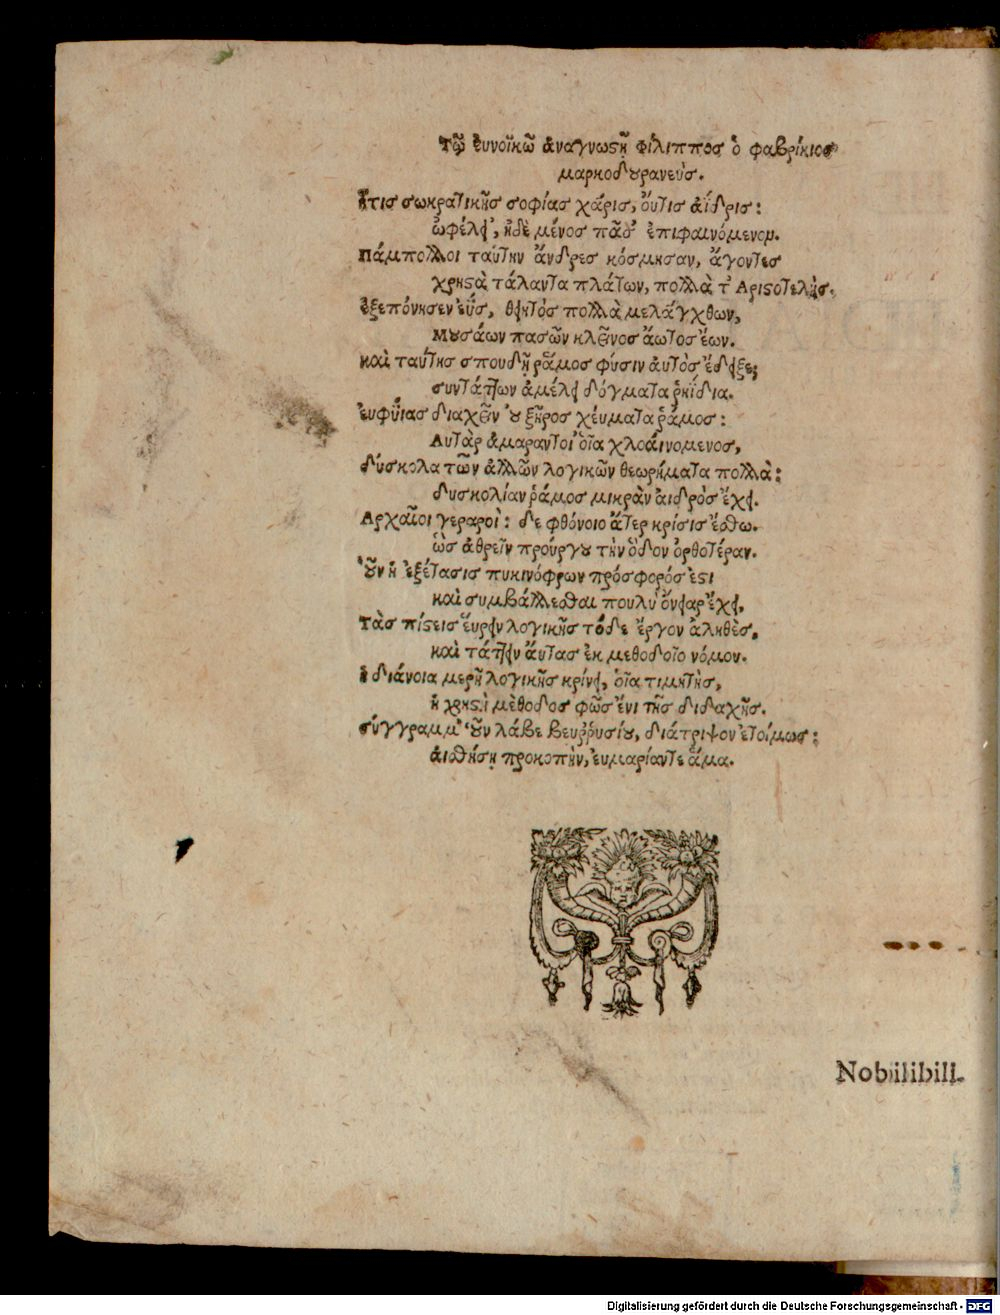 Τῷ ἐυνοϊκῶ ἀναγνωϛῇ Φίλιππος ὁ φαβρίκιος
μαρκοδȣρανεύς.
ἥτις σωκρατικῆς σοφίας χάρις, ὄυτις ἀΐδρις:
ὠφέλει, ἠδὲ μένος πᾶσ' ἐπιφαινόμενον.
Πάμπολλοι ταύτην ἄνδρες κόσμησαν, ἄγοντες
χρηϛὰ τάλαντα πλάτων, πολλὰ τ' Αριϛοτελὴς.
ἐξεπόνησεν ἐΰς, θειητὸς πολλὰ μελάγχθων,
Μȣσάων πασῶν κλεῖνος ἄωτος ἔων.
καὶ ταύτης σπουδῇ ῥᾶμος φύσιν ἀυτὸς ἔδειξε;
συντάττων ἀμέλει δόγματα ῥηΐδια.
ἐυφΰιας διαχεῖν ȣ ξῆρος χέυματα ῥάμος:
Αυτὰρ ἀμαραντοὶ οἷα χλοάινομενος,
δύσκολα τῶν ἀλλῶν λογικῶν θεωρήματα πολλὰ:
δυσκολίαν ῥάμος μικρὰν ἀιδρὸς ἔχει.
Αρχαῖοι γεραροὶ: δε φθόνοιο ἄτερ κρίσις ἔσθω.
ὡς ἀθρεῖν πρόυργȣ τὴν ὃδον ὀρθοτέραν.
Ὃυν ἡ ἐξέτασις πυκινόφρων πρόσφορός ἐϛι
καὶ συμβάλλεσθαι πουλὺ ὄνειαρ ἔχει,
τὰς πίϛεις ἕυρειν λογικῆς τόδε ἔργον ἀληθὲς.
καὶ τάττειν ἄυτας ἐκ μεθοδοῖο νόμον.
ἡ διάνοια μερῆ λογικῆς κρίνει, οἷα τιμητὴς,
ἡ χρηϛὶ μὲθοδος φῶς ἔνι τῆς διδαχῆς.
σύγγραμμ' ὃυν λάβε Βευῤῥυσίȣ, διάτριψον ἑτοίμως:
ἀισθήσῃ προκοπὴν, ἐυμαρίαντε ἅμα.
Nobilibili.
Digitalisierung gefördert durch die Deutsche Forschungsgemeinschaft - DFG